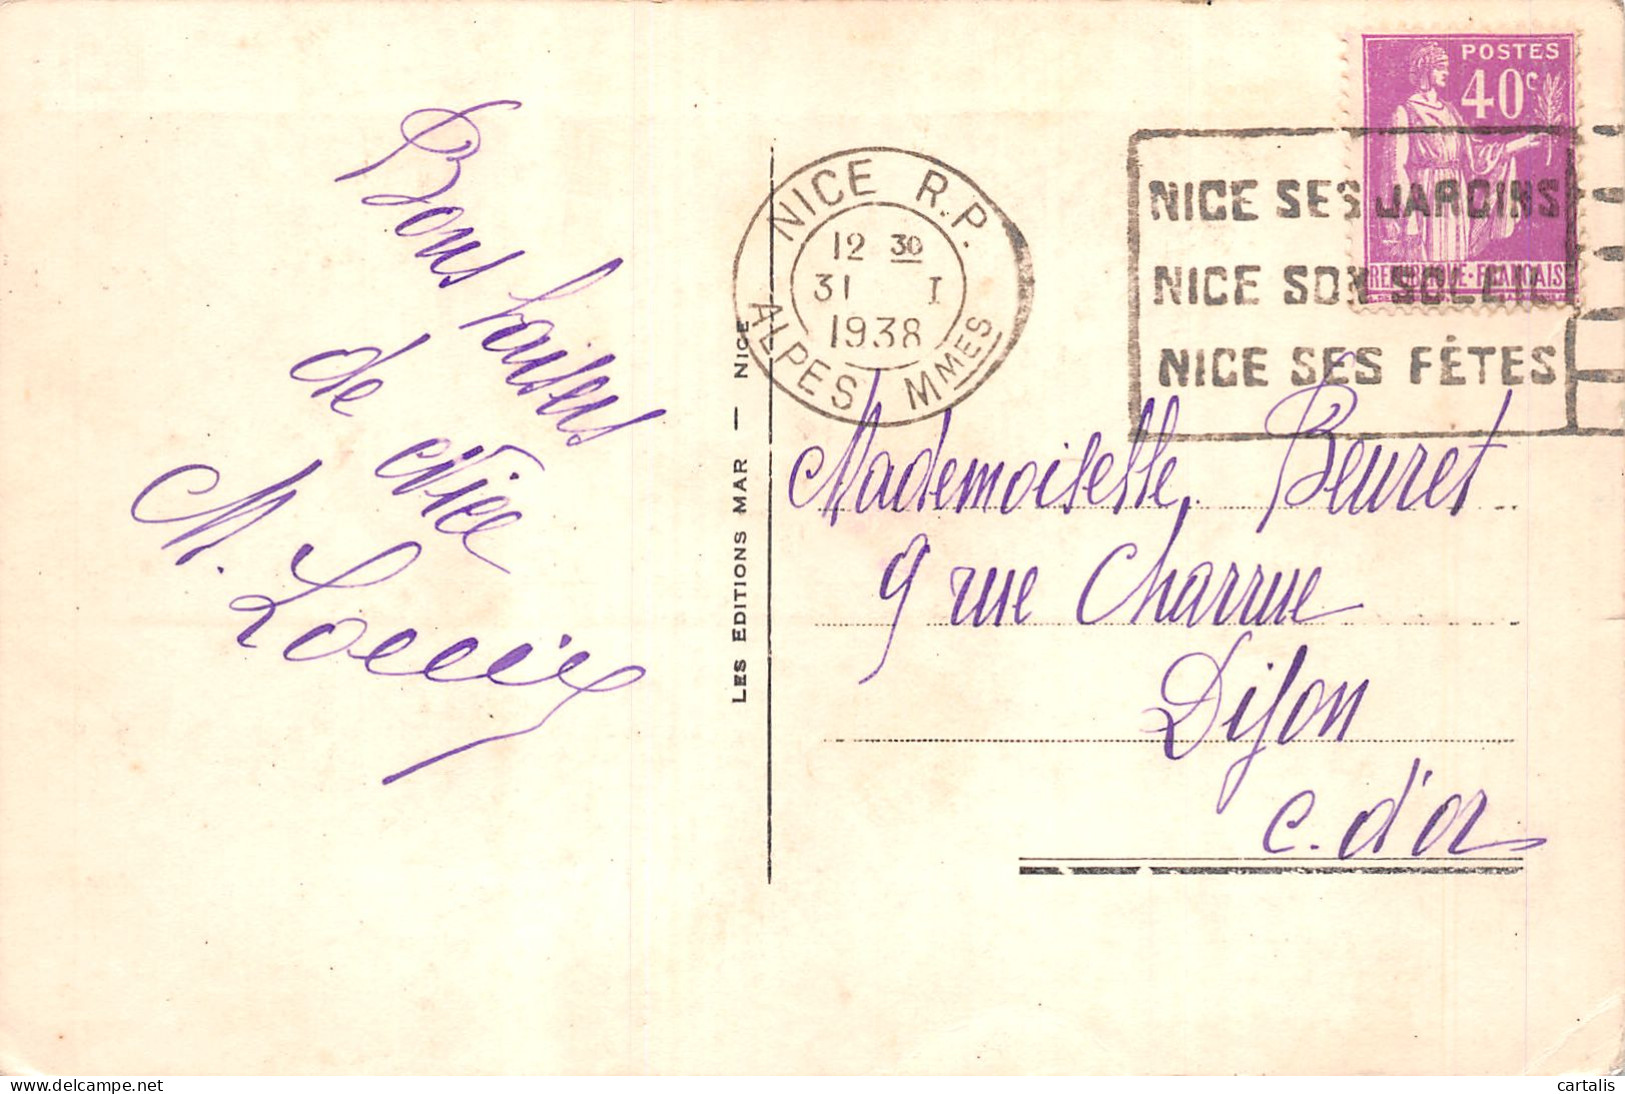 Bons baisers
de Nice
M. Louis
LES EDITIONS MAR — NICE
NICE R.P.
12 30
31 I
1938
ALPES MMES
POSTES
40c
REPUBLIQUE·FRANCAISE
NICE SES JARDINS
NICE SON SOLEIL
NICE SES FÊTES
Mademoiselle Beuret
9 rue Charrue
Dijon
C. d'or
delcampe.net
cartalis